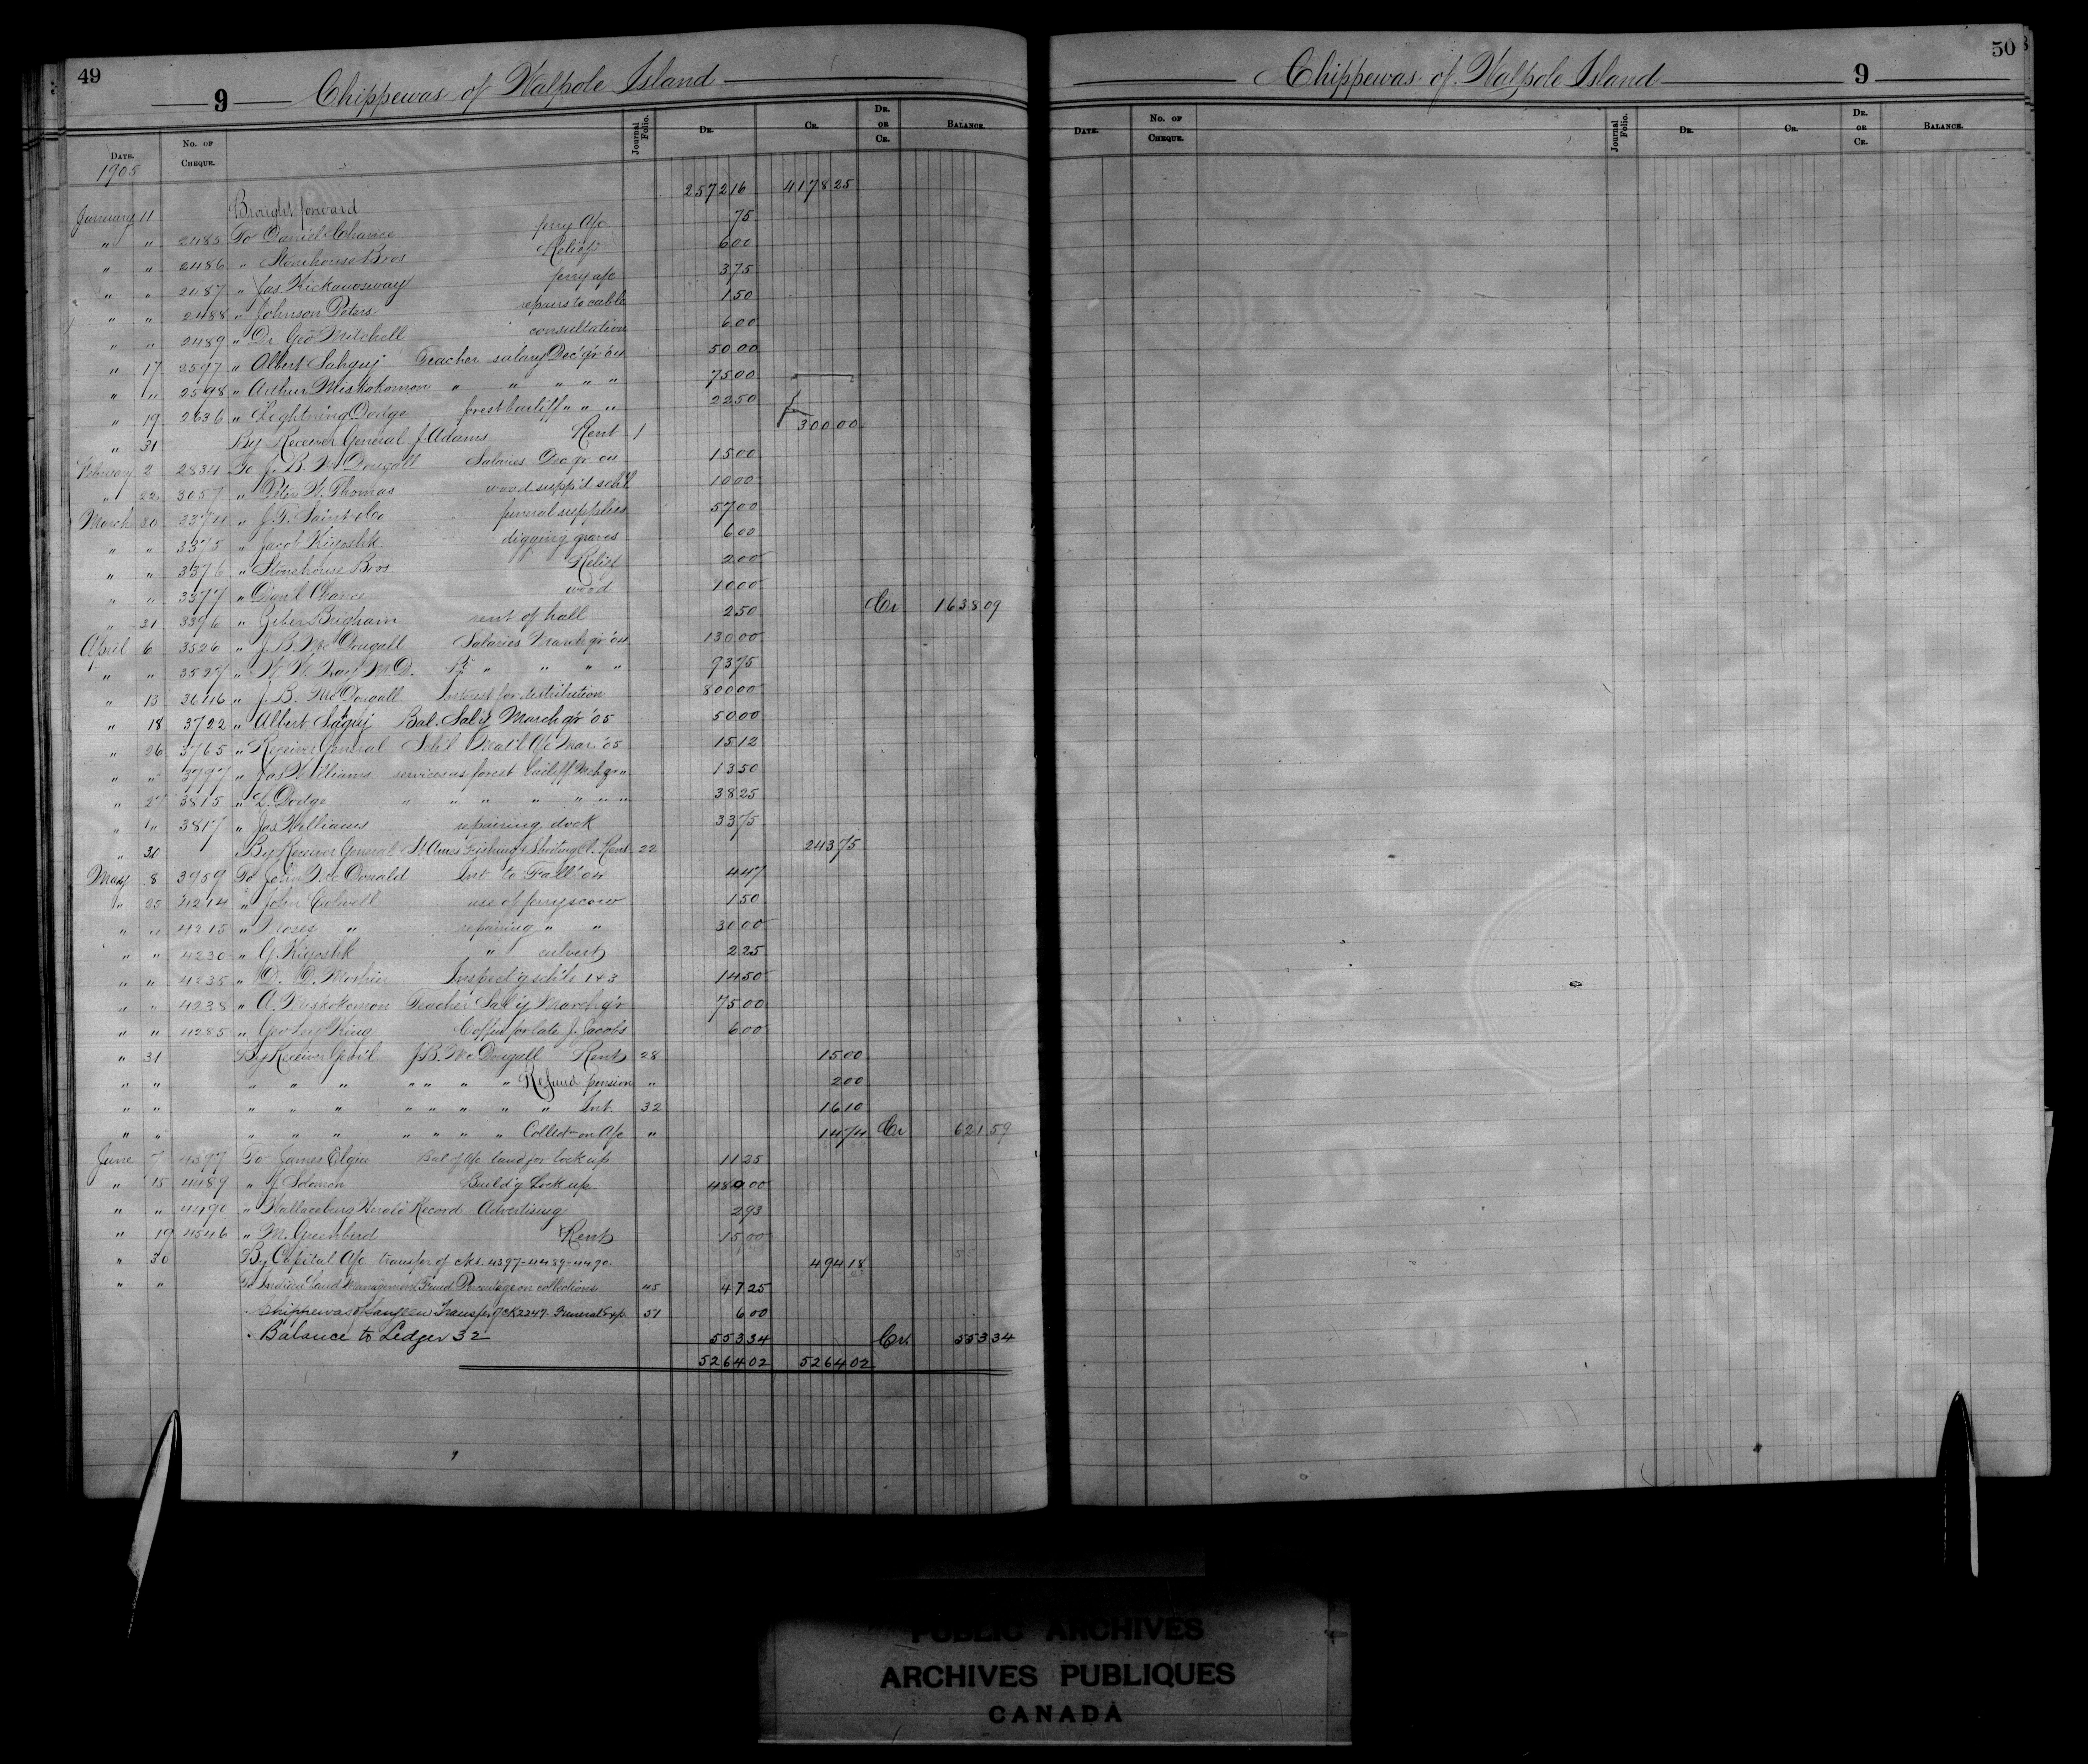 49
9 Chippewas of Walpole Island
Date. No. of Cheque. Journal Folio. Dr. Cr. Dr. or Cr. Balance.
1905
Brought forward 2572 16 4178 25
January 11 2485 To Daniel Chance ferry a/c 75
" " 2486 " Stonehouse Bros Relief 6 00
" " 2487 " Jas Kickanosway ferry a/c 3 75
" " 2488 " Johnson Peters repairs to cable 1 50
" " 2489 " Dr. Geo Mitchell consultation 6 00
" 17 2597 " Albert Sahguj Teacher salary Dec qr '04 50 00
" " 2598 " Arthur Miskokomon " " " " " 75 00
" 19 2636 " Lightning Dodge forest bailiff " " " 22 50
" 31 By Receiver General J. Adams Rent 1 300 00
February 2 2834 To J. B. McDougall Salaries Dec qr 04 15 00
" 22 3057 " Peter W. Thomas wood supp'd sch'l 10 00
March 30 3374 " J. T. Saint & Co funeral supplies 57 00
" " 3375 " Jacob Kiyoshk digging graves 6 00
" " 3376 " Stonehouse Bros Relief 2 00
" " 3377 " Dan'l Chance wood 10 00
" 31 3396 " Brigham rent of hall 2 50 Cr 1638 09
April 6 3526 " J. B. McDougall Salaries March qr '04 130 00
" " 3527 " W. W. Hay M.D. " " " " 93 75
" 13 3646 " J. B. McDougall Interest for distribution 800 00
" 18 3722 " Albert Saguj Bal. Sal'y March qr '05 50 00
" 26 3765 " Receiver General Sch'l Mat'l a/c Mar. '05 15 12
" " 3797 " Jas Williams services as forest bailiff Mch qr " 13 50
" 27 3815 " L. Dodge " " " " " " " 38 25
" " 3817 " Jas Williams repairing dock 33 75
" 31 By Receiver General St Annes Fishing & Shooting Cl. Rent 22 243 75
May 8 3959 To John McDonald Int to Fall '04 4 47
" 25 4214 " John Colwell use of ferry scow 1 50
" " 4215 " Moses " repairing " " 30 00
" " 4230 " G. Kiyoshk " culvert 2 25
" " 4235 " D. D. Moshier Inspect'g sch'ls 1 & 3 14 50
" " 4238 " A. Miskokomon Teacher Sal'y March qr 75 00
" " 4285 " Geo Ley King Coffin for late J. Jacobs 6 00
" 31 By Receiver Gen'l J. B. McDougall Rent 28 15 00
" " " " " " " " " Refund pension " 2 00
" " " " " " " " " " Int. 32 16 10
" " " " " " " " " Collect on a/c " 14 74 Cr 621 59
June 7 4397 To James Elgin Bal of a/c land for lock up 11 25
" 15 4489 " J. Solomon Build'g Lock up 480 00
" " 4490 " Wallaceburg Herald Record Advertising 2 93
" 19 4546 " M. Greenbird Rent 15 00
" 30 By Capital a/c transfer of cks. 4397-4489-4490 494 18
" " To Indian Land Management Fund Percentage on collections 45 47 25
Chippewas of Saugeen Transfer of CK 2247 Funeral Exp. 51 6 00
Balance to Ledger 32 553 34 Cr. 553 34
5264 02 5264 02
50
Chippewas of Walpole Island 9
Date. No. of Cheque. Journal Folio. Dr. Cr. Dr. or Cr. Balance.
PUBLIC ARCHIVES
ARCHIVES PUBLIQUES
CANADA